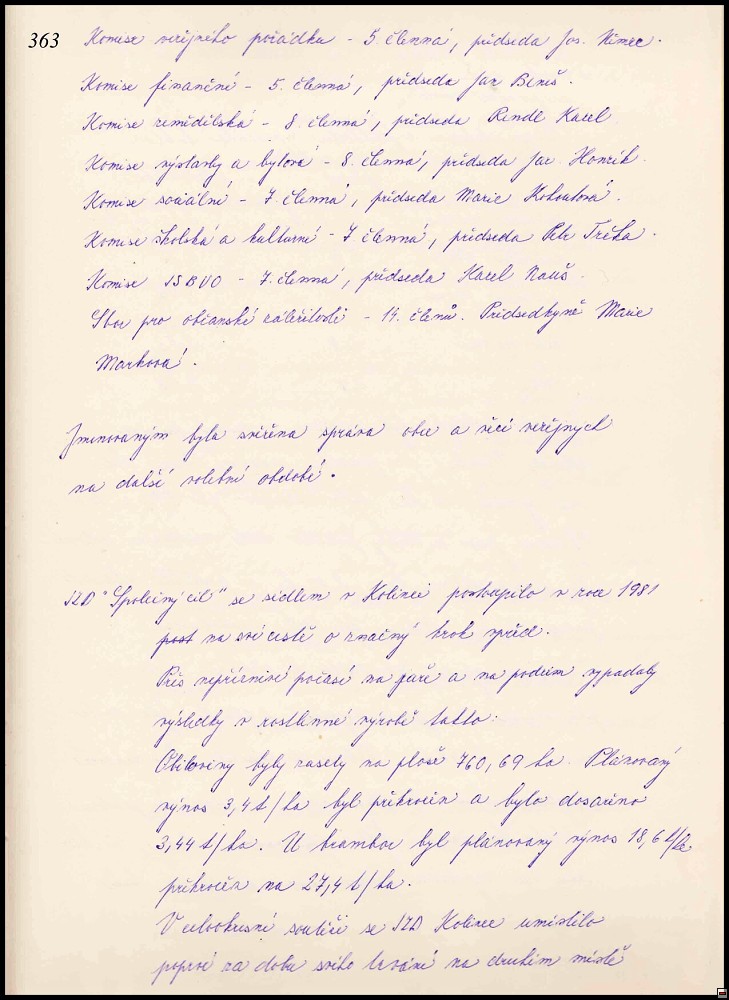 363
Komise veřejného pořádku - 5. členná, předseda Jos. Němec.
Komise finanční - 5. členná, předseda Jan Beneš.
Komise zemědělská - 8. členná, předseda Rendl Karel
Komise výstavby a bytová - 8. členná, předseda Jar. Honzík.
Komise sociální - 7. členná, předseda Marie Kohoutová.
Komise školská a kulturní - 7 členná, předseda Petr Tréba.
Komise JSBVO - 7. členná, předseda Karel Nauš.
Sbor pro občanské záležitosti - 14. členů. Předsedkyně Marie
Marková.
Jmenovaným byla svěřena správa obce a věcí veřejných
na další volební období.
JZD "Společný cíl" se sídlem v Kolinci postoupilo v roce 1981
post na své cestě o značný krok vpřed.
Přes nepříznivé počasí na jaře a na podzim vypadaly
výsledky v rostlinné výrobě takto:
Obiloviny byly zasety na ploše 760,69 ha. Plánovaný
výnos 3,4 t/ha byl překročen a bylo dosaženo
3,44 t/ha. U brambor byl plánovaný výnos 18,6 t/ha
překročen na 27,4 t/ha.
V celookresní soutěži se JZD Kolinec umístilo
poprvé za dobu svého trvání na druhém místě